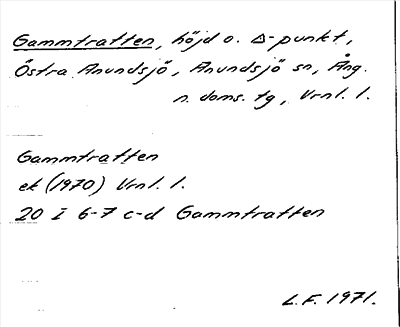 Gammtratten, höjd o. △-punkt,
Östra Anundsjö, Anundsjö sn, Ång.
n. doms. tg, Vrnl. l.
Gammtratten
ek (1970) Vrnl. l.
20 I 6-7 c-d Gammtratten
L.F. 1971.